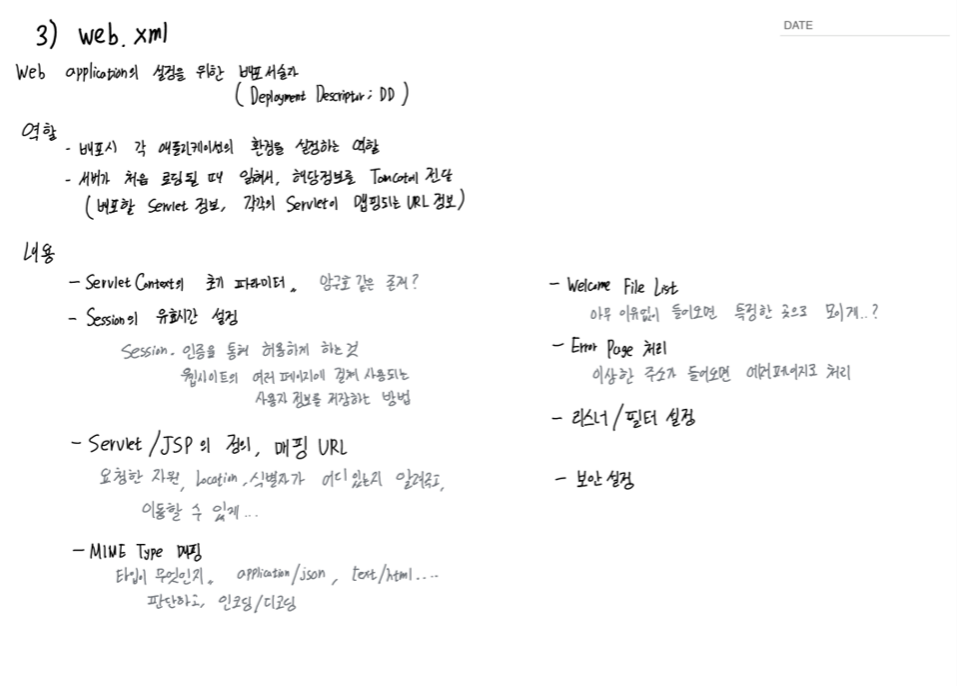 DATE
3) web.xml
Web application의 설정을 위한 배포서술자
(Deployment Descriptor; DD)
역할
- 배포시 각 애플리케이션의 환경을 설정하는 역할
- 서버가 처음 로딩될 때 읽혀서, 해당정보를 Tomcat에 전달
(배포할 Servlet 정보, 각각의 Servlet이 맵핑되는 URL 정보)
내용
- Servlet Context의 초기 파라미터. 암구호 같은 존재?
- Session의 유효시간 설정
Session. 인증을 통해 허용하게 하는 것
웹사이트의 여러 페이지에 걸쳐 사용되는
사용자 정보를 저장하는 방법
- Servlet/JSP의 정의, 매핑 URL
요청한 자원, Location, 식별자가 어디있는지 알려주고,
이동할 수 있게...
- MIME Type 매핑
타입이 무엇인지. application/json, text/html....
판단하고, 인코딩/디코딩
- Welcome File List
아무 이유없이 들어오면 특정한 곳으로 모이게..?
- Error Page 처리
이상한 주소가 들어오면 에러페이지로 처리
- 리스너/필터 설정
- 보안 설정